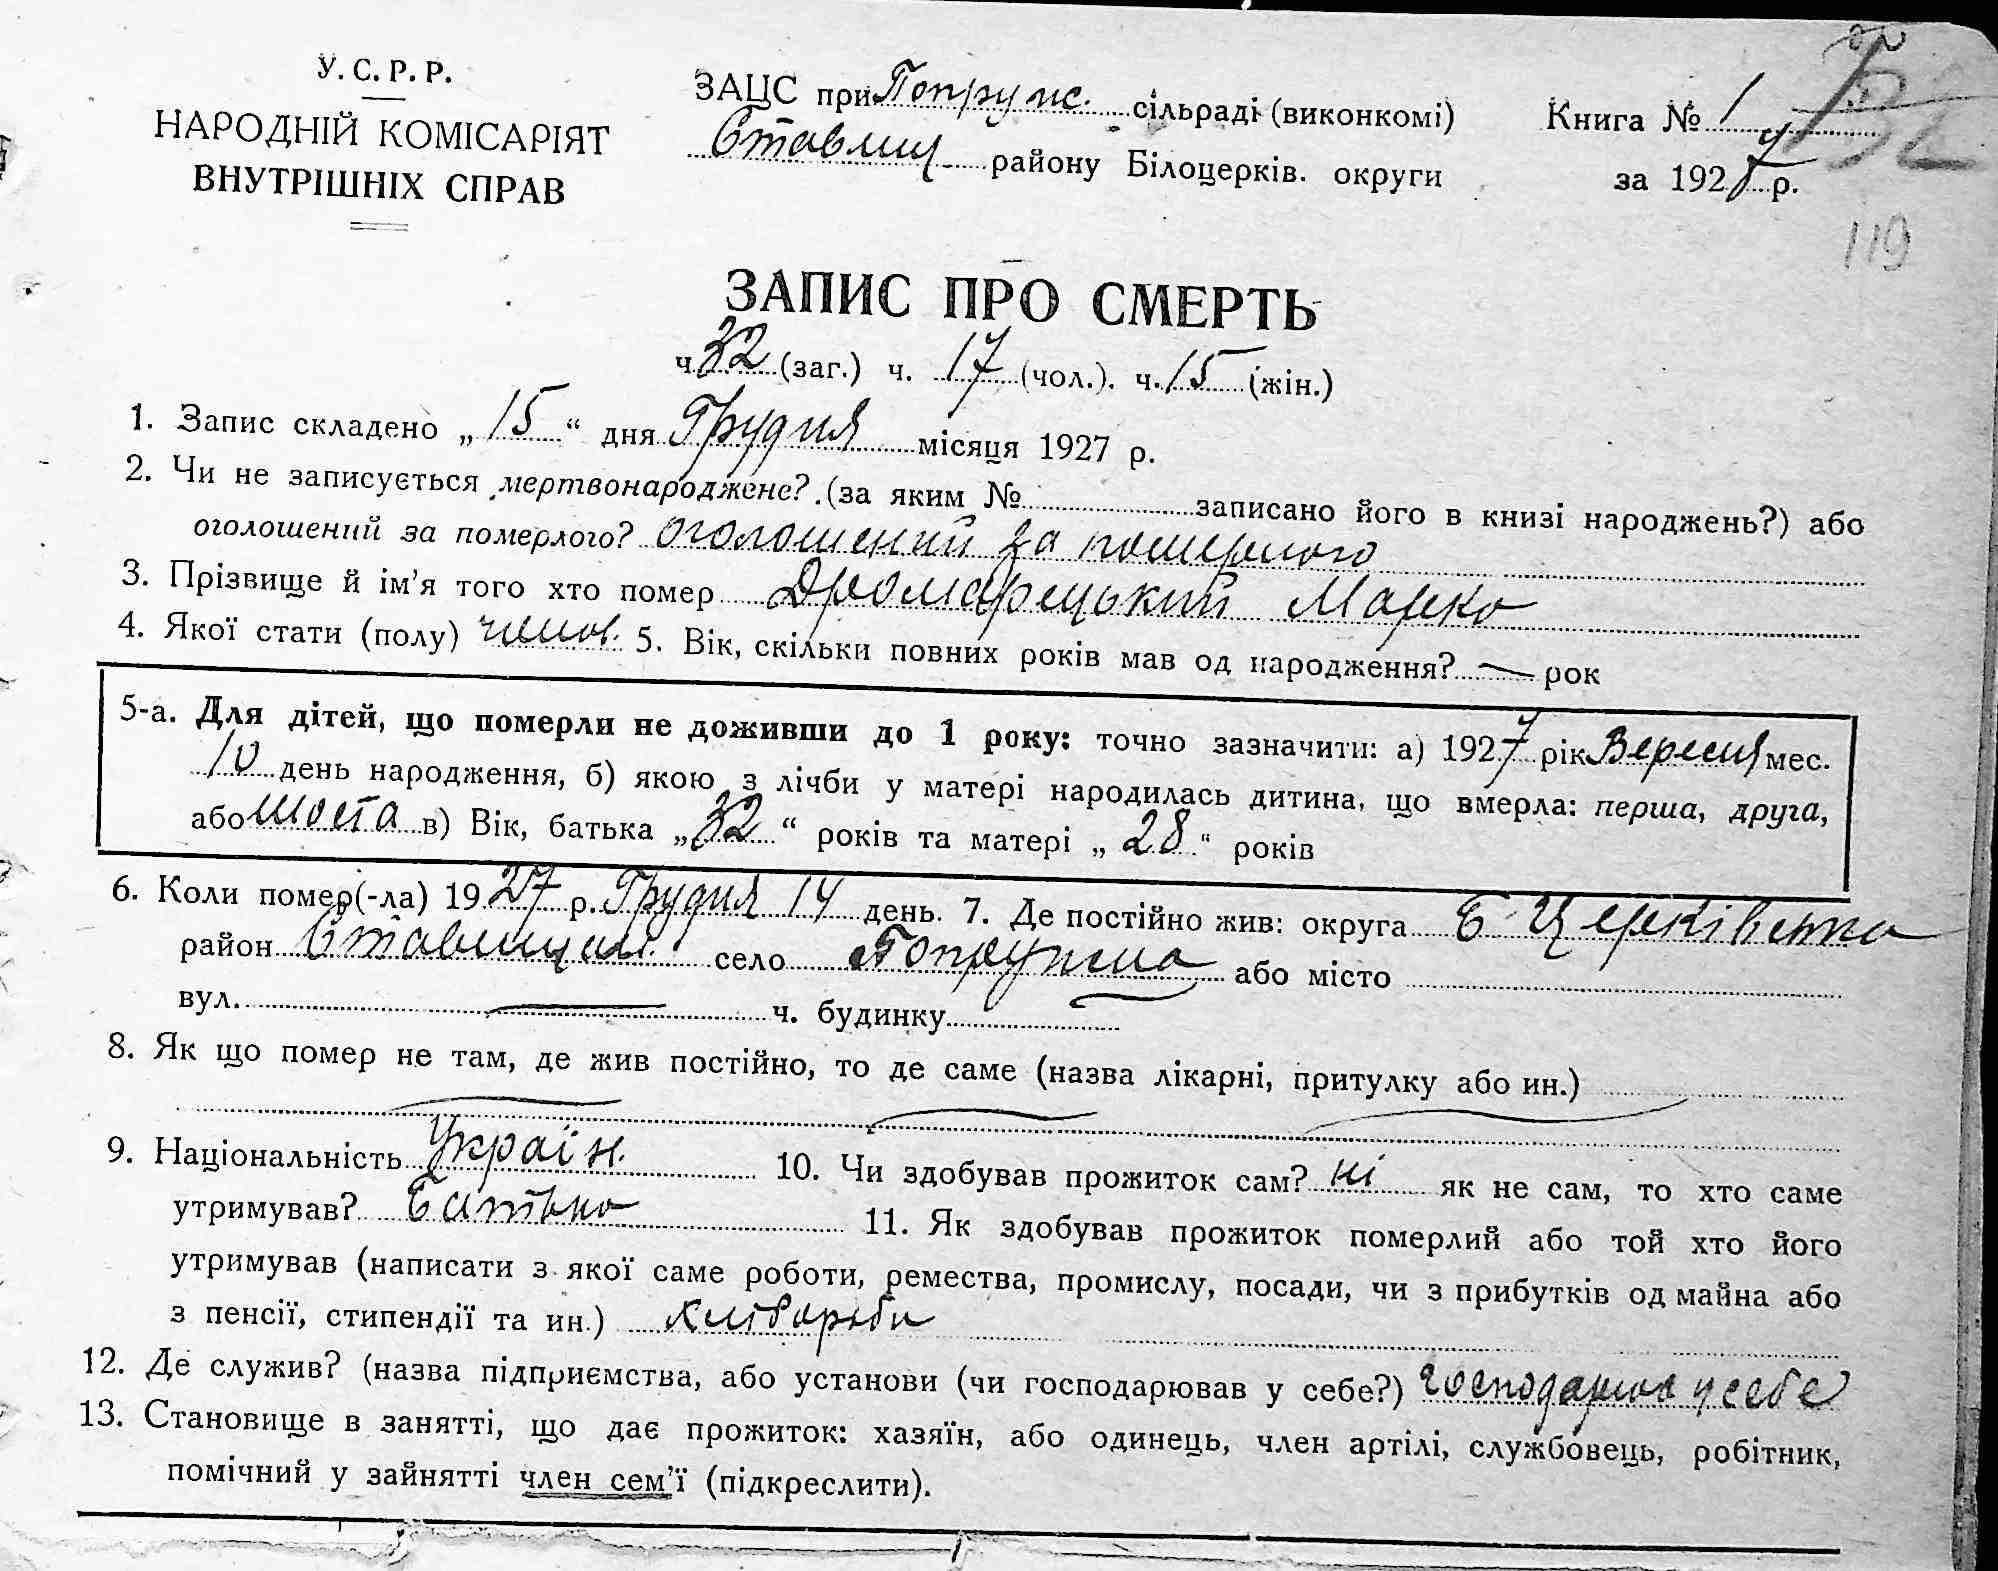 У. С. Р. Р.
НАРОДНІЙ КОМІСАРІЯТ
ВНУТРІШНІХ СПРАВ
ЗАЦС при Попружс. сільраді (виконкомі)
Ставищ районy Білоцерків. округи
Книга № 1
за 1927 р.
119
ЗАПИС ПРО СМЕРТЬ
ч. 32 (заг.) ч. 17 (чол.). ч. 15 (жін.)
1. Запис складено „ 15 “ дня Грудня місяця 1927 р.
2. Чи не записується мертвонароджене? (за яким № записано його в книзі народжень?) або
оголошений за померлого? оголошений за померлого
3. Прізвище й ім’я того хто помер Дромарецький Марко
4. Якої стати (полу) чолов. 5. Вік, скільки повних років мав од народження? — рок
5-а. Для дітей, що померли не доживши до 1 року: точно зазначити: а) 1927 рік Вересня мес.
10 день народження, б) якою з лічби у матері народилась дитина, що вмерла: перша, друга,
або шоста в) Вік, батька „ 32 “ років та матері „ 28 “ років
6. Коли помер(-ла) 1927 р. Грудня 14 день. 7. Де постійно жив: округа Б Церківська
район Ставищан. село Попружна або місто
вул. — ч. будинку —
8. Як що помер не там, де жив постійно, то де саме (назва лікарні, притулку або ин.)
9. Національність Україн. 10. Чи здобував прожиток сам? ні як не сам, то хто саме
утримував? Батько 11. Як здобував прожиток померлий або той хто його
утримував (написати з якої саме роботи, ремества, промислу, посади, чи з прибутків од майна або
з пенсії, стипендії та ин.) хліборобн
12. Де служив? (назва підприємства, або установи (чи господарював у себе?) господарював у себе
13. Становище в занятті, що дає прожиток: хазяїн, або одинець, член артілі, службовець, робітник,
помічний у зайнятті член сем’ї (підкреслити).